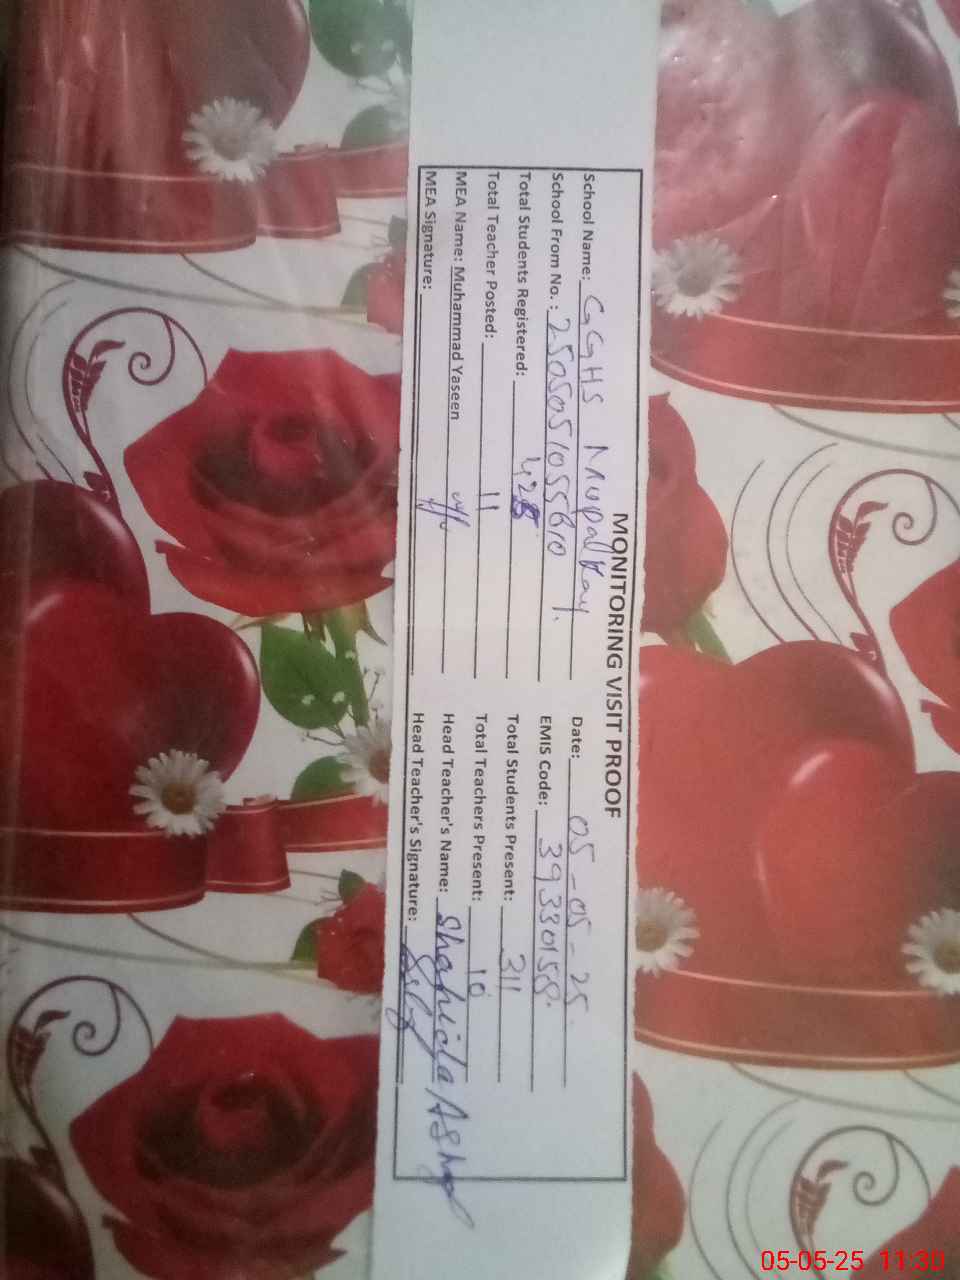 MONITORING VISIT PROOF
School Name: GGHS Mupalkay. Date: 05-05-25.
School From No.: 2505051055610 EMIS Code: 39330158.
Total Students Registered: 428 Total Students Present: 311
Total Teacher Posted: 11 Total Teachers Present: 10
MEA Name: Muhammad Yaseen Head Teacher's Name: Shahida
MEA Signature: Head Teacher's Signature:
05-05-25 11:30